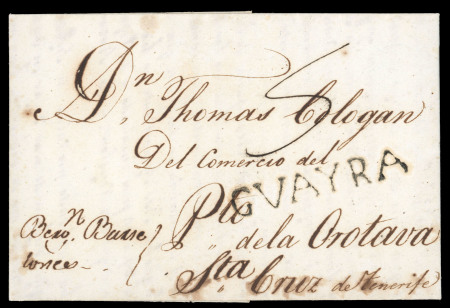 Dn. Thomas Cologan
5
Del Comercio del
GUAYRA
Pto
de la Orotava
Bergn. Barse
lones
Sta. Cruz de Tenerife